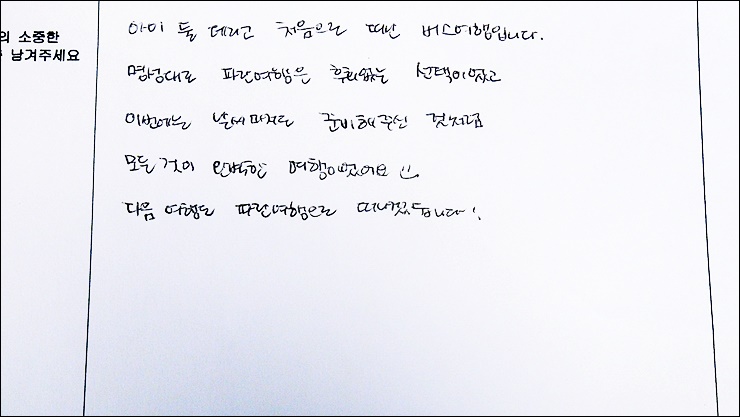 의 소중한
남겨주세요
아이 둘 데리고 처음으로 떠난 버스여행입니다.
명성대로 파란여행은 후회없는 선택이었고
이번에는 날씨마저도 준비해주신 것처럼
모든 것이 완벽한 여행이었어요 :)
다음 여행도 파란여행으로 떠나겠습니다!